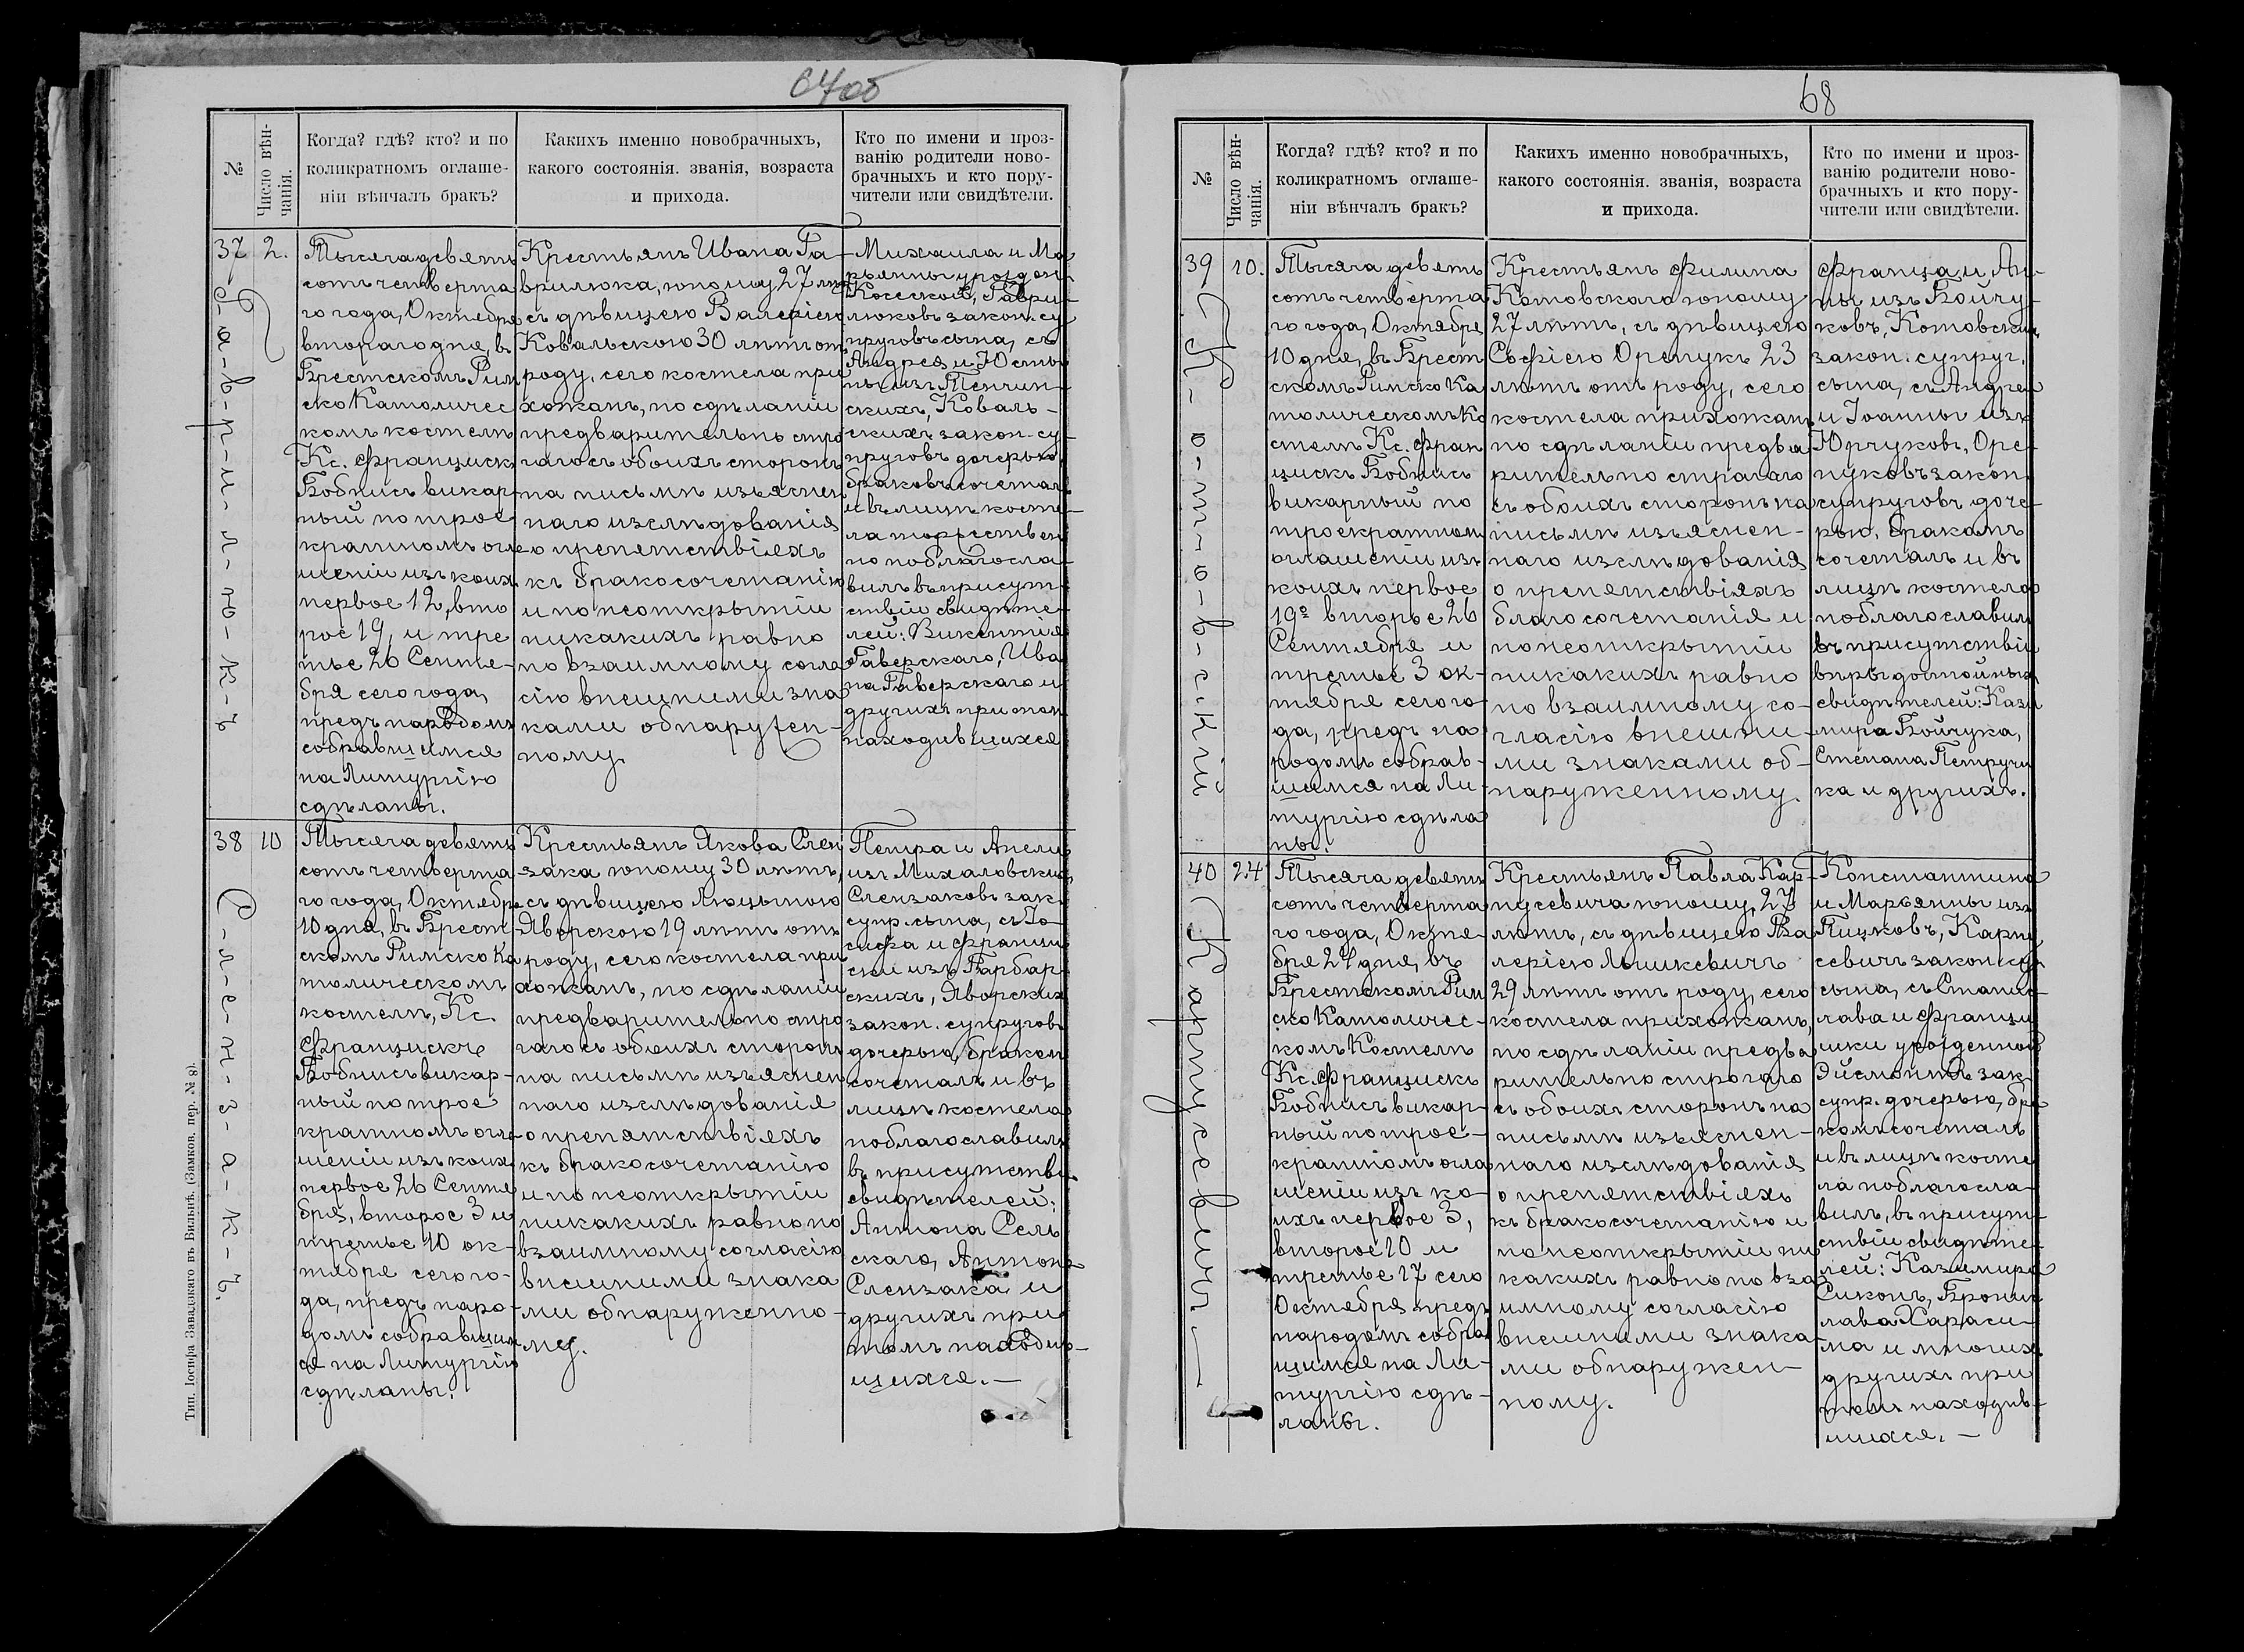 67об
№
Число вѣн-
чанія.
Когда? гдѣ? кто? и по
коликратномъ оглаше-
ніи вѣнчалъ бракъ?
Какихъ именно новобрачныхъ,
какого состоянія. званія, возраста
и прихода.
Кто по имени и проз-
ванію родители ново-
брачныхъ и кто пору-
чители или свидѣтели.
37
Г-а-в-р-и-л-ю-к-ъ
2.
Тысяча девять
сотъ четверта
го года, Октября
втораго дня, въ
Брестскомъ Рим
ско Католичес
комъ костелѣ
Кс. Францискъ
Бобнисъ викар
ный по трое
кратномъ огла
шеніи изъ коихъ
первое 12, вто
рое 19, и тре
тье 26 Сентя-
бря сего года,
предъ народомъ
собравшимся
на Литургію
сдѣланы.
Крестьянъ Ивана Га-
врилюка, юношу 27 лѣтъ
съ дѣвицею Валерією
Ковальскою 30 лѣтъ отъ
роду, сего костела при
хожанъ, по сдѣланіи
предварительно стро
гаго съ обоихъ сторонъ
на письмѣ изъяснен
наго изслѣдованія
о препятствіяхъ
къ бракосочетанію
и по неоткрытіи
никакихъ равно
по взаимному согла
сію внешними зна
ками обнаружен-
ному.
Михаила и Ма
рьянны урожден
Гаври-
люковъ закон. су
пруговъ сына, съ
Андрея и Юсти
ны изъ Тенчин-
скихъ, Коваль-
скихъ закон. су-
пруговъ дочерью
бракомъ сочеталъ
и въ лицѣ косте-
ла торжествен
но поблагосла-
вилъ въ присут-
ствіи свидѣте-
лей: Викентія
Гаверскаго, Ива
на Гаверскаго и
другихъ при томъ
находившихся
38
С-л-е-н-з-а-к-ъ.
10
Тысяча девять
сотъ четверта
го года, Октября
10 дня, въ Брест
скомъ Римско Ка
толическомъ
костелѣ, Кс.
Францискъ
Бобнисъ викар-
ный по трое
кратномъ огла-
шеніи изъ коихъ
первое 26 Сентя
бря, второе 3 и
третье 10 ок-
тября сего го-
да, предъ наро-
домъ собравшим
ся на Литургію
сдѣланы.
Крестьянъ Якова Слен
зака юношу 30 лѣтъ,
съ дѣвицею Люцыною
Яворскою 19 лѣтъ отъ
роду, сего костела при
хожанъ, по сдѣланіи
предварительно стро
гаго съ обоихъ сторонъ
на письмѣ изъяснен
наго изслѣдованія
о препятствіяхъ
къ бракосочетанію
и по неоткрытіи
никакихъ равно по
взаимному согласію
внешними знака
ми обнаруженно-
му.
Петра и Анели
изъ Михаловскихъ
Слензаковъ зак.
супр. сына, съ Іо-
сифа и Францы
ски изъ Барбар
скихъ, Яворскихъ
закон. супруговъ
дочерью, бракомъ
сочеталъ и въ
лицѣ костела
поблагославилъ
въ присутстві
свидѣтелей:
Антона Сель
скаго, Антона
Слензака и
другихъ при
томъ находив-
шихся.—
Тип. Іосифа Завадзкаго въ Вильнѣ. (Замков. пер. № 8).
68
№
Число вѣн-
чанія.
Когда? гдѣ? кто? и по
коликратномъ оглаше-
ніи вѣнчалъ бракъ?
Какихъ именно новобрачныхъ,
какого состоянія. званія, возраста
и прихода.
Кто по имени и проз-
ванію родители ново-
брачныхъ и кто пору-
чители или свидѣтели.
39
К-о-т-о-в-с-кій
10.
Тысяча девять
сотъ четверта
го года, Октября
10 дня, въ Брест
скомъ Римско Ка
толическомъ Ко
стелѣ Кс. Фран
цискъ Бобнисъ
викарный по
троекратномъ
оглашеніи изъ
коихъ первое
19е второе 26
Сентября и
третье 3 ок-
тября сего го-
да, предъ на
родомъ собрав-
шимся на Ли-
тургію сдѣла
ны.
Крестьянъ Филипа
Котовскаго юношу
27 лѣтъ, съ дѣвицею
Софією Орепукъ 23
лѣтъ отъ роду, сего
костела прихожанъ
по сдѣланіи предва
рительно строгаго
съ обоихъ сторонъ на
письмѣ изъяснен-
наго изслѣдованія
о препятствіяхъ
благосочетанія и
по неоткрытіи
никакихъ равно
по взаимному со-
гласію внешни-
ми знаками об-
наруженному.
Франца и Ан-
ны изъ Бойчу
ковъ, Котовскихъ
закон. супруг.
сына, съ Андрея
и Іоанны изъ
Юрчуковъ, Оре-
пуковъ закон.
супруговъ доче-
рью, бракомъ
сочеталъ и въ
лицѣ костела
поблагославилъ
въ присутствіи
вѣры достойныхъ
свидѣтелей: Кази
мира Бойчука,
Степана Петручи
ка и другихъ.
40
Карпусевичъ—
24
Тысяча девять
сотъ четверта
го года, Октя-
бря 24 дня, въ
Брестскомъ Рим
ско Католичес-
комъ Костелѣ
Кс. Францискъ
Бобнисъ викар-
ный по трое-
кратномъ огла
шеніи изъ ко-
ихъ первое 3,
второе 10 и
третье 17 сего
Октября предъ
народомъ собра
шимся на Ли-
тургію сдѣ-
ланы.
Крестьянъ Павла Кар-
пусевича юношу, 27
лѣтъ, съ дѣвицею Ва
лерією Лышкевичъ
29 лѣтъ отъ роду, сего
костела прихожанъ,
по сдѣланіи предва
рительно строгаго
съ обоихъ сторонъ на
письмѣ изъяснен-
наго изслѣдованія
о препятствіяхъ
къ бракосочетанію и
по неоткрытіи ни
какихъ равно по вза
имному согласію
внешними знака
ми обнаружен-
ному.
Константина
и Марьянны изъ
Пицковъ, Карпу
севичъ закон суп
сына, съ Станис-
лава и Францы
шки урожденной
Эйсмонтъ зак.
супр. дочерью, бра
комъ сочеталъ
и въ лицѣ косте
ла поблагосла-
вилъ, въ присут-
ствіи свидѣте-
лей: Казимира
Сикопъ, Брони
лава Хараси-
ма и многихъ
другихъ при
томъ находив-
шихся.—